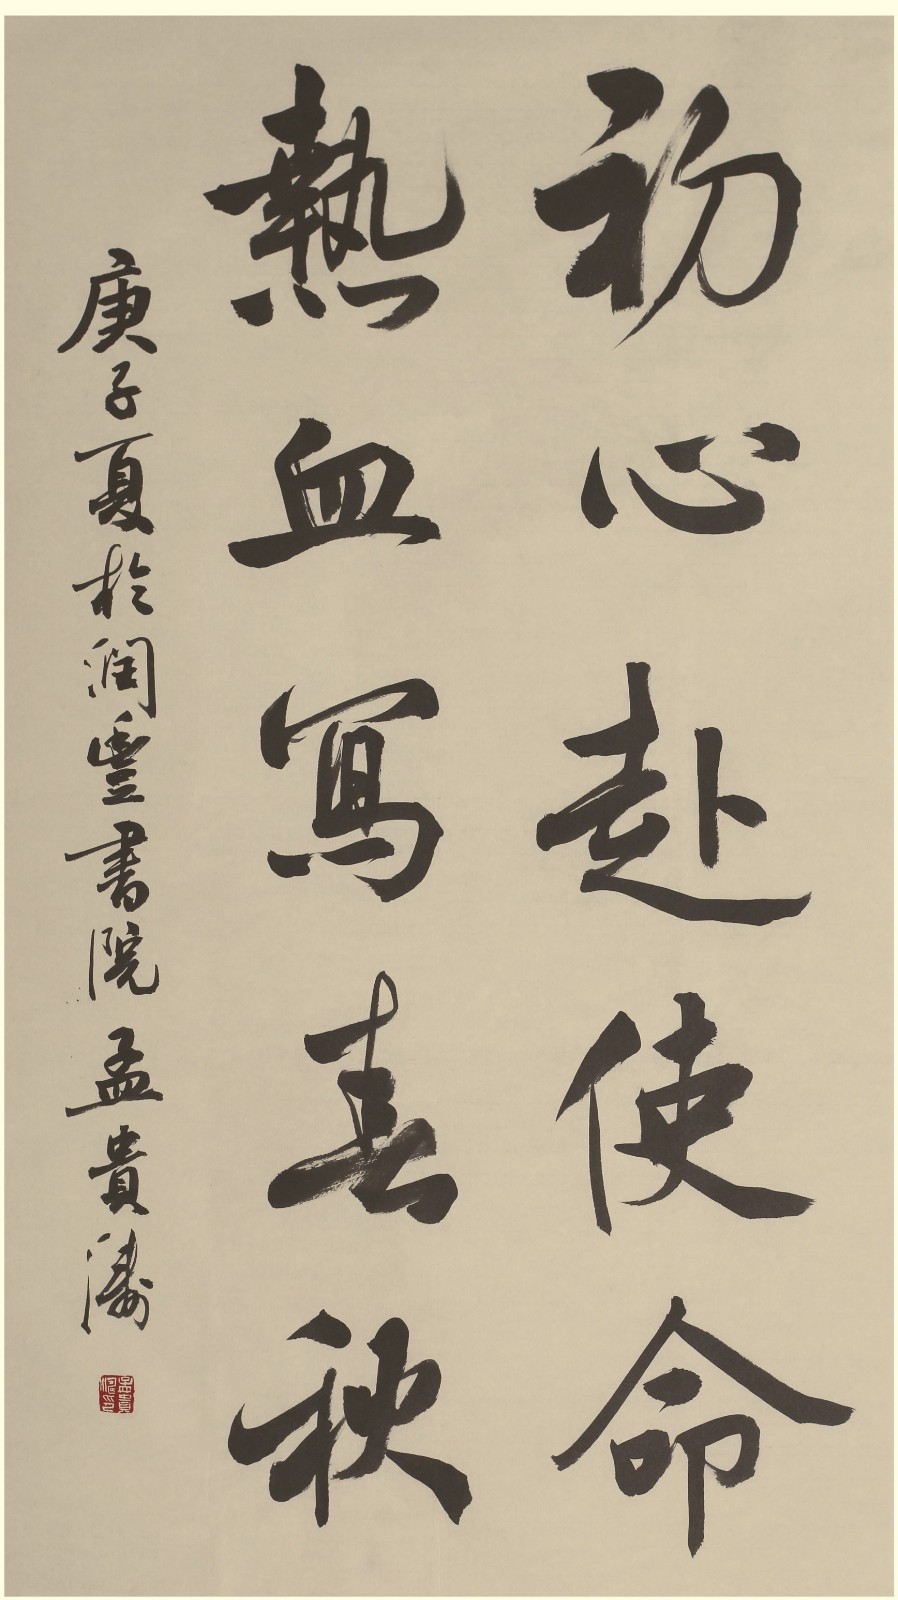 初心赴使命
熱血寫春秋
庚子夏於潤豐書院孟貴濤
孟貴濤印